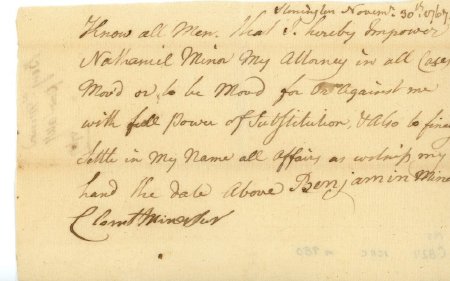 Stonington Novemr. 30th. 1767
Know all Men. That I hereby Impower
Nathaniel Minor My Attorney in all Cases
Mov'd or to be Mov'd for Or Against me
with full Power of Substitution, & Also to
Settle in My Name all Affairs as witness my
hand the date Above Benjamin Minor